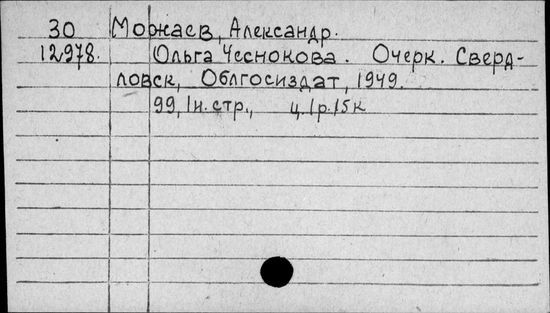 30 Моржаев, Александр.
12978. Ольга Чеснокова. Очерк. Сверд-
ловск, Облгосиздат, 1949.
99, 1н. стр., ц. 1р. 15к